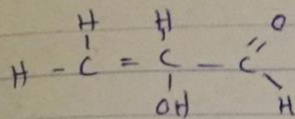 H H O
H - C = C - C
OH H